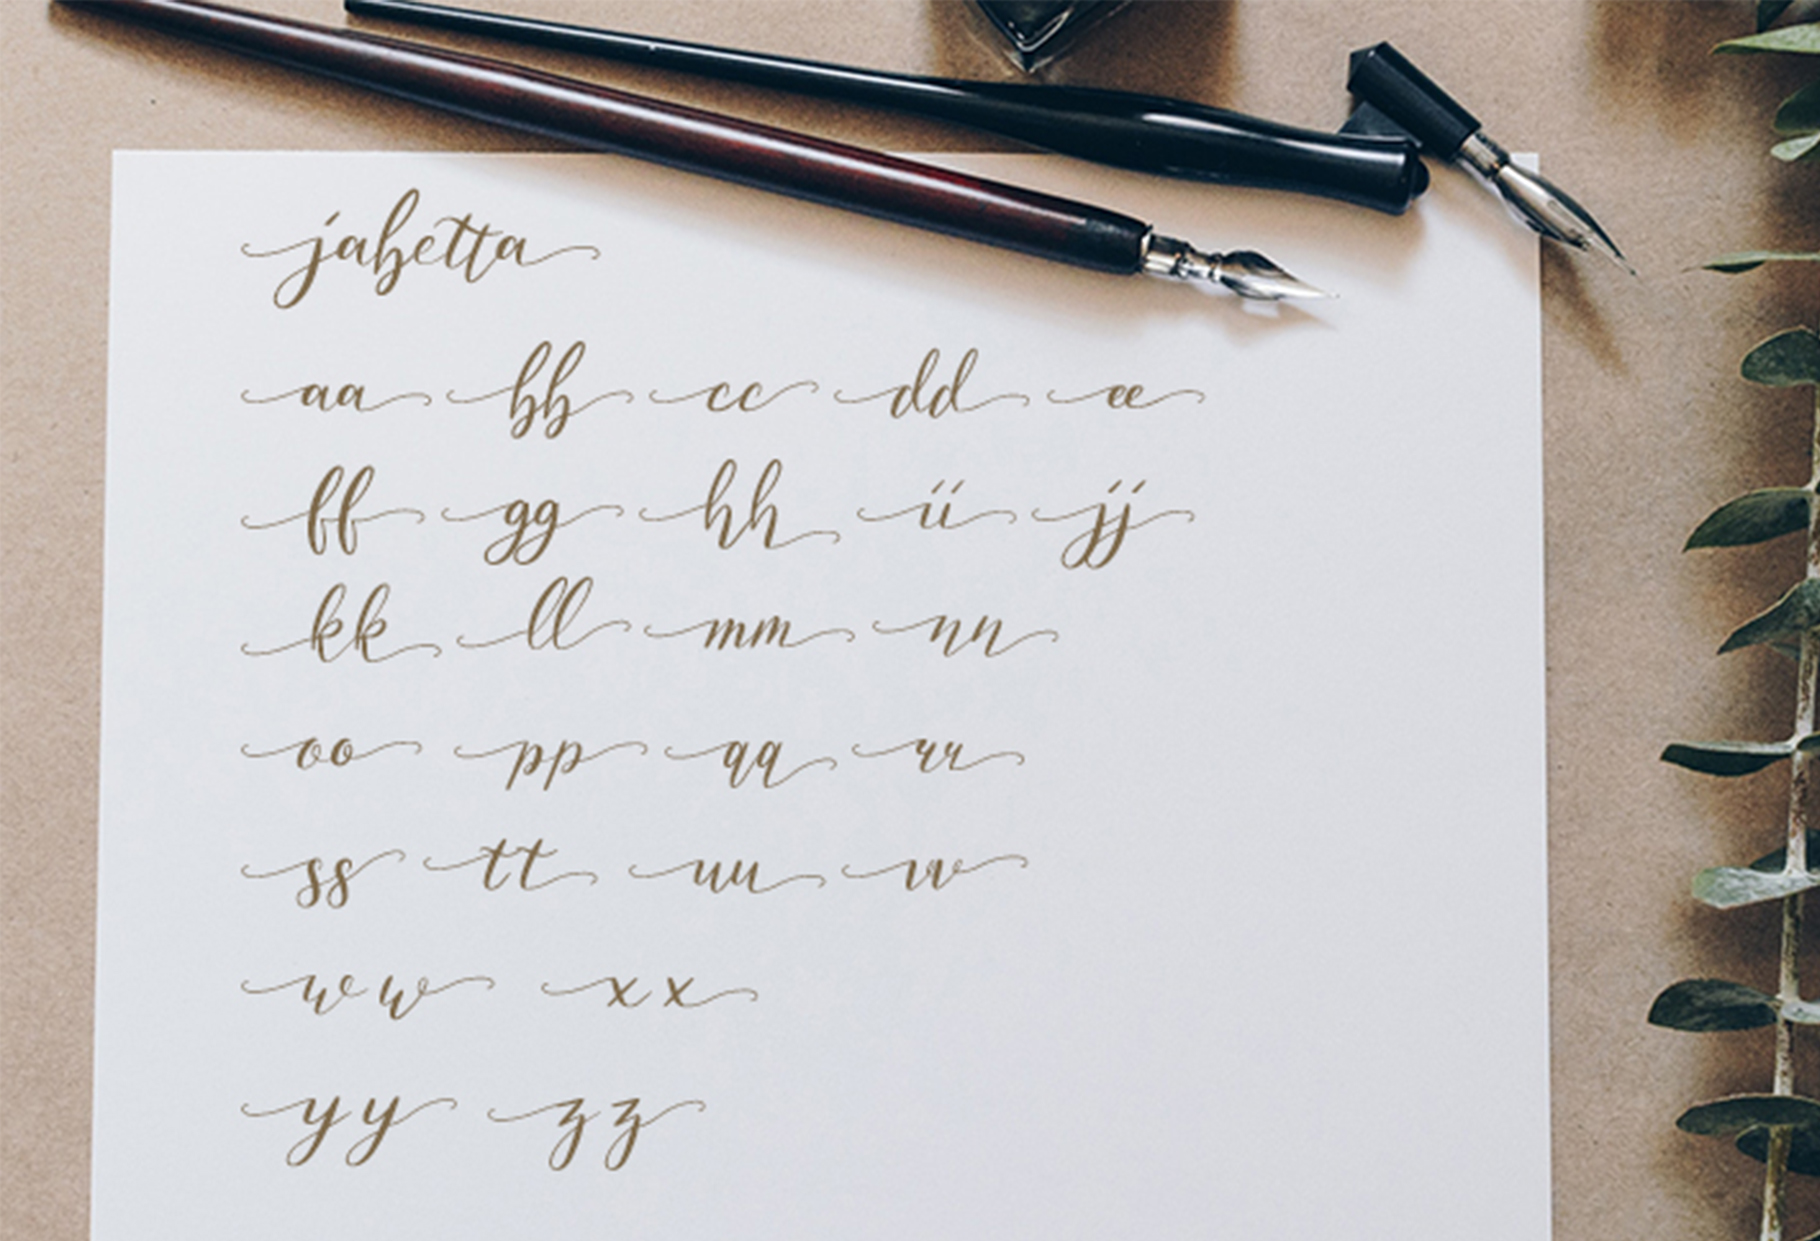 jabetta
aa bb cc dd ee
ff gg hh ii jj
kk ll mm nn
oo pp qq rr
ss tt uu vv
ww xx
yy zz